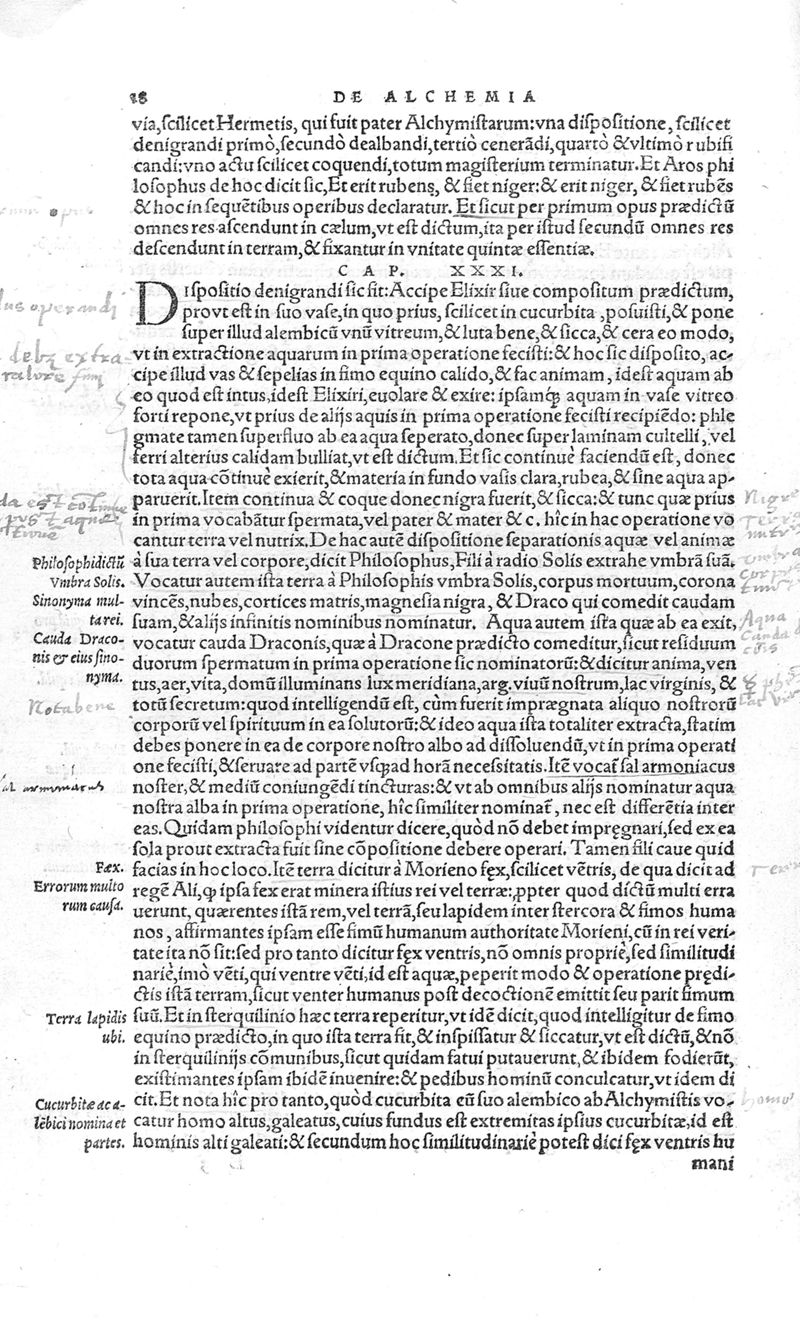 28 DE ALCHEMIA
via,ſcilicet Hermetis, qui fuit pater Alchymiſtarum: vna diſpoſitione, ſcilicet
denigrandi primò,ſecundò dealbandi,tertiò cenerãdi,quartò &vltimò rubifi
candi: vno actu ſcilicet coquendi,totum magiſterium terminatur.Et Aros phi
loſophus de hoc dicit ſic,Et erit rubens, & fiet niger:& erit niger, & fiet rubẽs
& hoc in ſequẽtibus operibus declaratur. Et ſicut per primum opus prædictũ
omnes res aſcendunt in cælum,vt eſt dictum,ita per iſtud ſecundũ omnes res
deſcendunt in terram,& fixantur in vnitate quintæ eſſentiæ.
CAP. XXXI.
DIſpoſitio denigrandi ſic fit: Accipe Elixir ſiue compoſitum prædictum,
provt eſt in ſuo vaſe,in quo prius, ſcilicet in cucurbita ,poſuiſti,& pone
ſuper illud alembicũ vnũ vitreum,& luta bene,& ſicca,& cera eo modo,
vt in extractione aquarum in prima operatione feciſti:& hoc ſic diſpoſito, ac-
cipe illud vas & ſepelias in fimo equino calido,& fac animam, ideſt aquam ab
eo quod eſt intus,ideſt Elixiri,euolare & exire: ipſamq́ꝫ aquam in vaſe vitreo
forti repone,vt prius de alijs aquis in prima operatione feciſti recipiẽdo: phle
gmate tamen ſuperfluo ab ea aqua ſeperato,donec ſuper laminam cultelli, vel
ferri alterius calidam bulliat,vt eſt dictum.Et ſic continuè faciendũ eſt, donec
tota aqua cõtinuè exierit,&materia in fundo vaſis clara,rubea,& ſine aqua ap-
paruerit.Item continua & coque donec nigra fuerit,& ſicca:& tunc quæ prius
in prima vocabãtur ſpermata,vel pater & mater & c. hîc in hac operatione vo
cantur terra vel nutrix.De hac autẽ diſpoſitione ſeparationis aquæ vel animæ
Philoſophi dictũ à ſua terra vel corpore,dicit Philoſophus,Fili à radio Solis extrahe vmbrã ſuã.
Vmbra Solis. Vocatur autem iſta terra à Philoſophis vmbra Solis,corpus mortuum,corona
Sinonyma mul- vincẽs,nubes,cortices matris,magneſia nigra, & Draco qui comedit caudam
ta rei. ſuam,&alijs infinitis nominibus nominatur. Aqua autem iſta quæ ab ea exit,
Cauda Draco- vocatur cauda Draconis,quæ à Dracone prædicto comeditur,ſicut reſiduum
nis & eius ſino- duorum ſpermatum in prima operatione ſic nominatorũ:&dicitur anima,ven
nyma. tus,aer,vita,domũ illuminans lux meridiana,arg.viuũ noſtrum,lac virginis, &
Nota bene totũ ſecretum:quod intelligendũ eſt, cùm fuerit imprægnata aliquo noſtrorũ
corporũ vel ſpirituum in ea ſolutorũ:& ideo aqua iſta totaliter extracta,ſtatim
debes ponere in ea de corpore noſtro albo ad diſſoluendũ,vt in prima operati
one feciſti,&ſeruare ad partẽ vſq́ꝫ ad horã neceſsitatis.Itẽ vocat̃ ſal armoniacus
noſter,& mediũ coniungẽdi tincturas:& vt ab omnibus alijs nominatur aqua
noſtra alba in prima operatione, hîc ſimiliter nominat̃ , nec eſt differẽtia inter
eas.Quidam philoſophi videntur dicere,quòd nõ debet imprẹgnari,ſed ex ea
ſola prout extracta fuit ſine cõpoſitione debere operari. Tamen fili caue quid
Fæx. facias in hoc loco.Itẽ terra dicitur à Morieno fęx,ſcilicet vẽtris, de qua dicit ad
Errorum multo regẽ Ali,ꝙ ipſa fex erat minera iſtius rei vel terræ:ꝓpter quod dictũ multi erra
rum cauſa. uerunt, quærentes iſtã rem,vel terrã,ſeu lapidem inter ſtercora & fimos huma
nos , affirmantes ipſam eſſe fimũ humanum authoritate Morieni,cũ in rei veri-
tate ita nõ ſit:ſed pro tanto dicitur fęx ventris,nõ omnis propriè,ſed ſimilitudi
nariè,imò vẽti,qui ventre vẽti,id eſt aquæ,peperit modo & operatione prędi-
ctis iſtã terram,ſicut venter humanus poſt decoctionẽ emittit ſeu parit fimum
Terra lapidis ſuũ.Et in ſterquilinio hæc terra reperitur,vt idẽ dicit,quod intelligitur de fimo
ubi. equino prædicto,in quo iſta terra fit,& inſpiſſatur & ſiccatur,vt eſt dictũ,&nõ
in ſterquilinijs cõmunibus,ſicut quidam fatui putauerunt,& ibidem fodierũt,
exiſtimantes ipſam ibidẽ inuenire:& pedibus hominũ conculcatur,vt idem di
Cucurbitæ ac a- cit.Et nota hîc pro tanto,quòd cucurbita cũ ſuo alembico ab Alchymiſtis vo-
lẽbici nomina et catur homo altus,galeatus,cuius fundus eſt extremitas ipſius cucurbitæ,id eſt
partes. hominis alti galeati:& ſecundum hoc ſimilitudinariè poteſt dici fęx ventris hu
mani